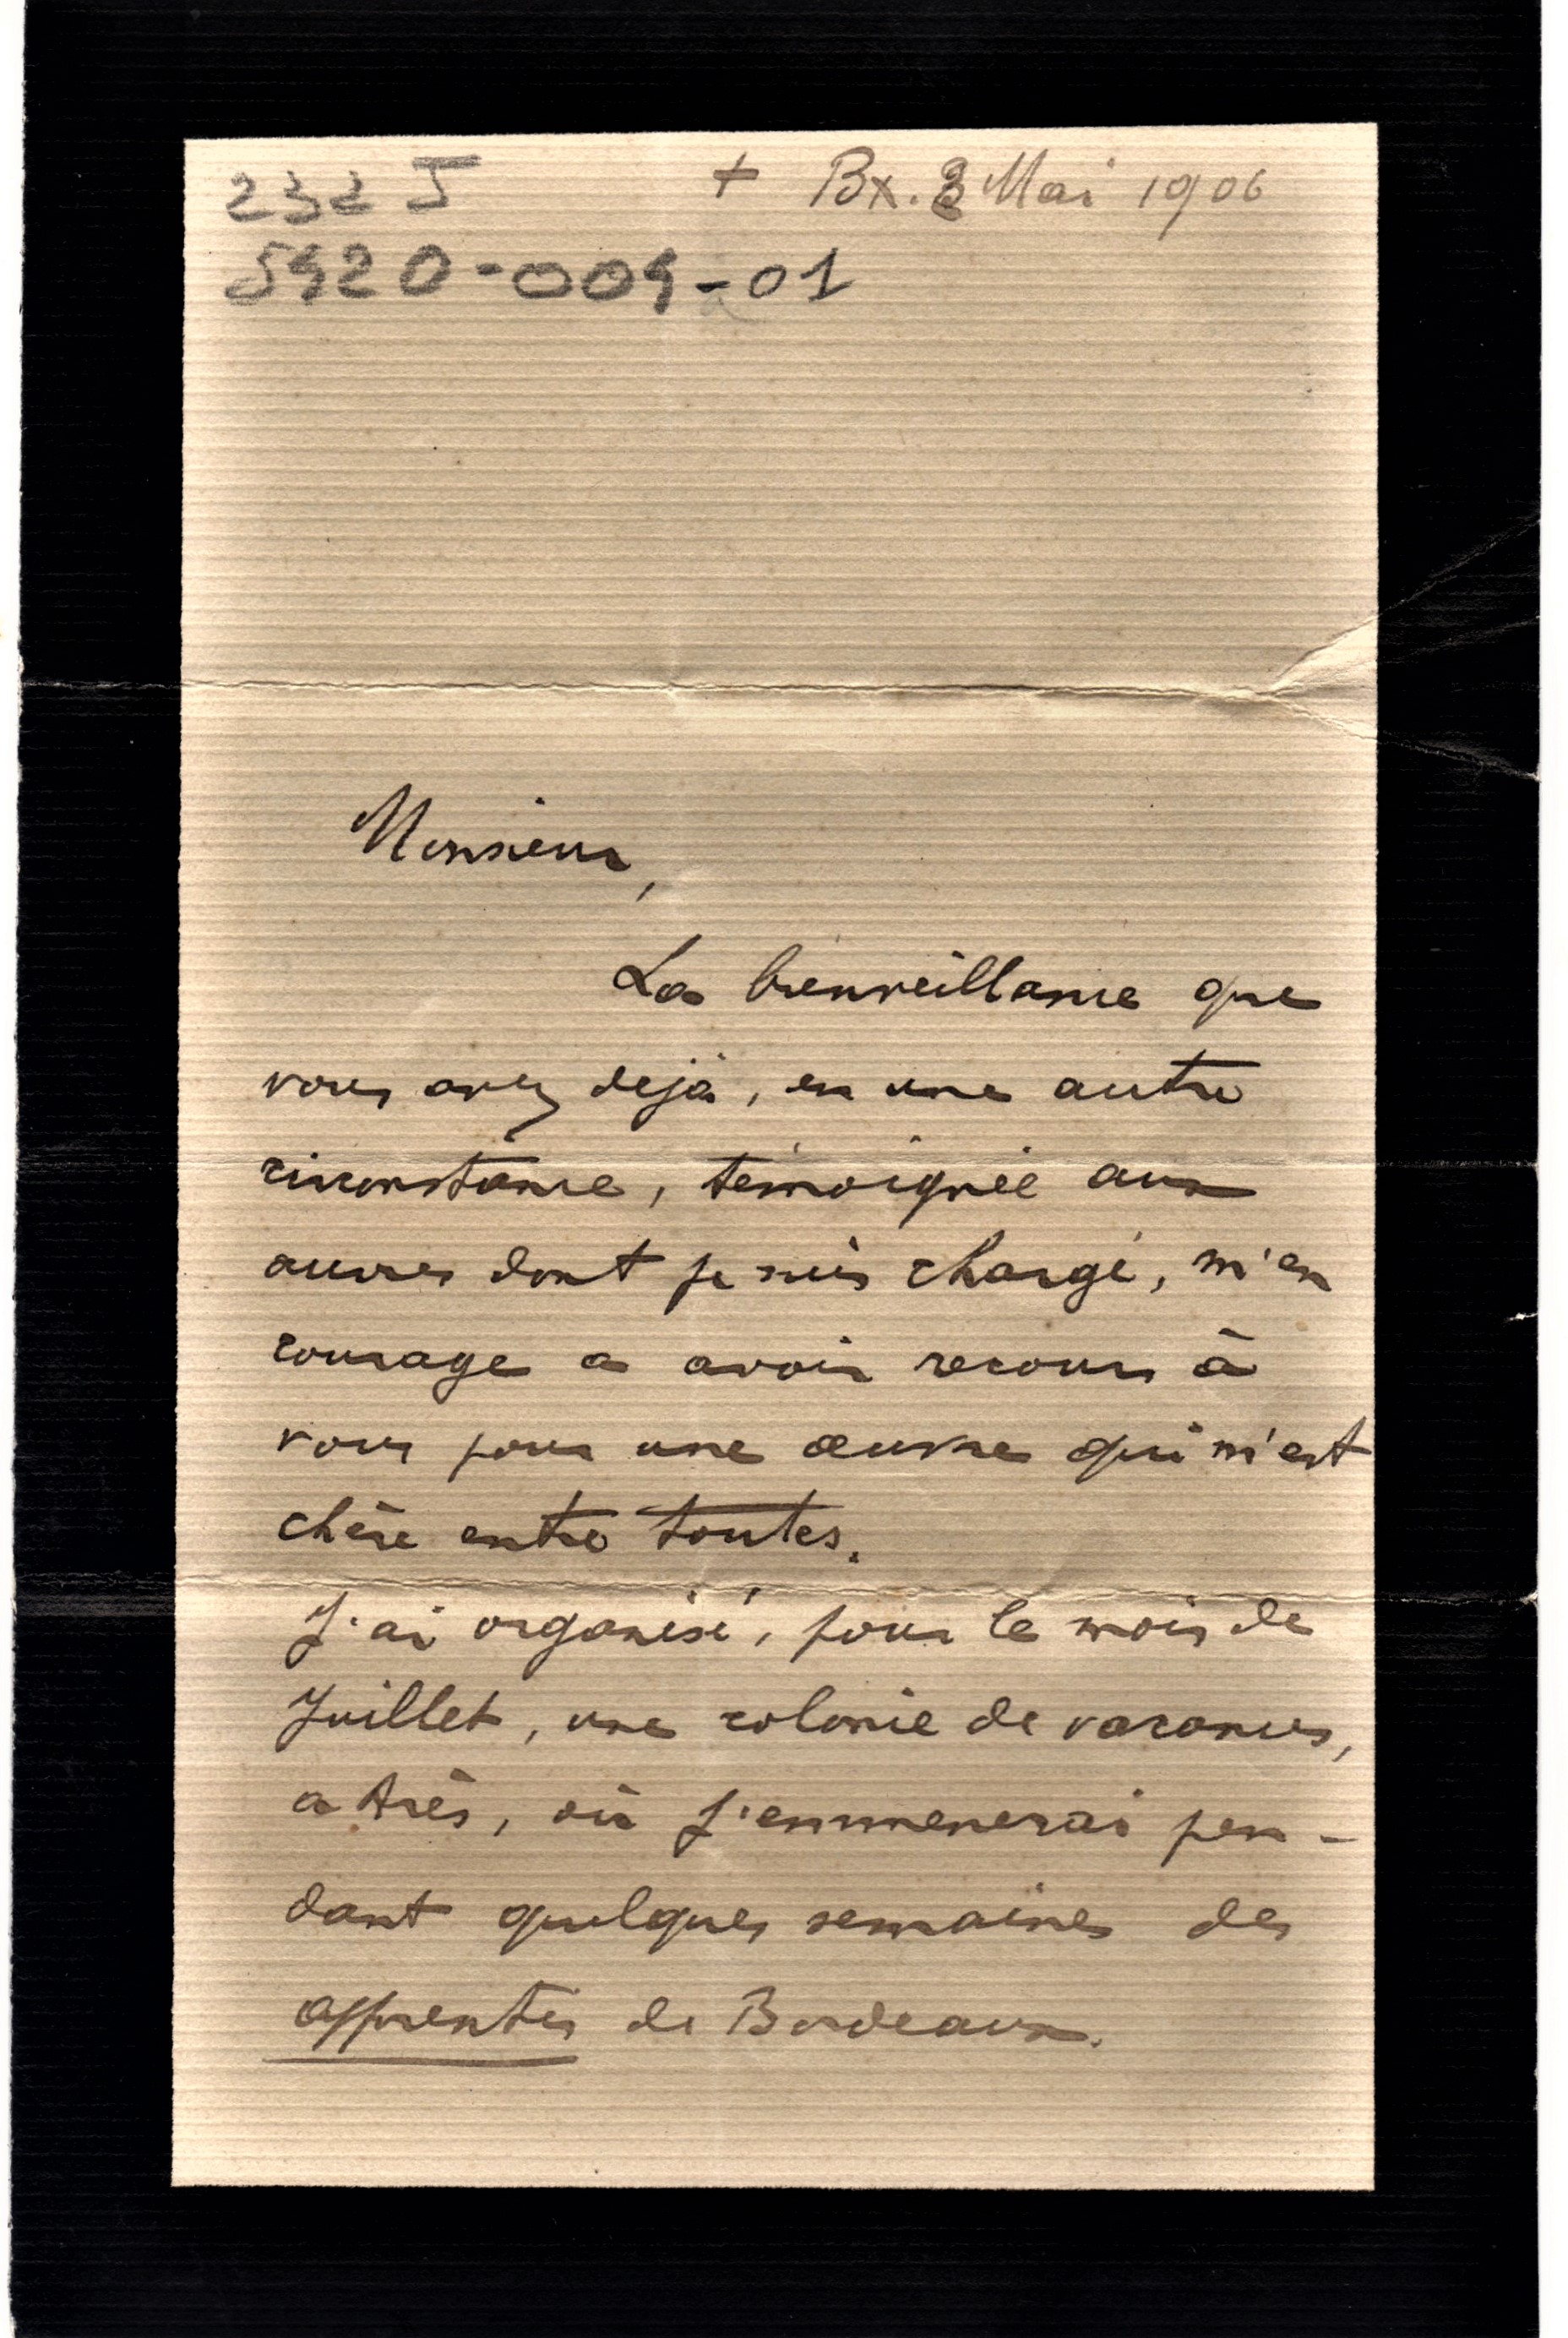 232 J + Bx. 3 Mai 1906
5420-004-01
Monsieur,
La bienveillance que
vous avez dejà, en une autre
circonstance, témoignée aux
œuvres dont je suis chargé, m'en
courage a avoir recours à
vous pour une œuvre qui m'est
chère entre toutes.
J'ai organisé, pour le mois de
Juillet, une colonie de vacances,
a Arès, où j'emmenerai pen-
dant quelques semaines des
apprentis de Bordeaux.